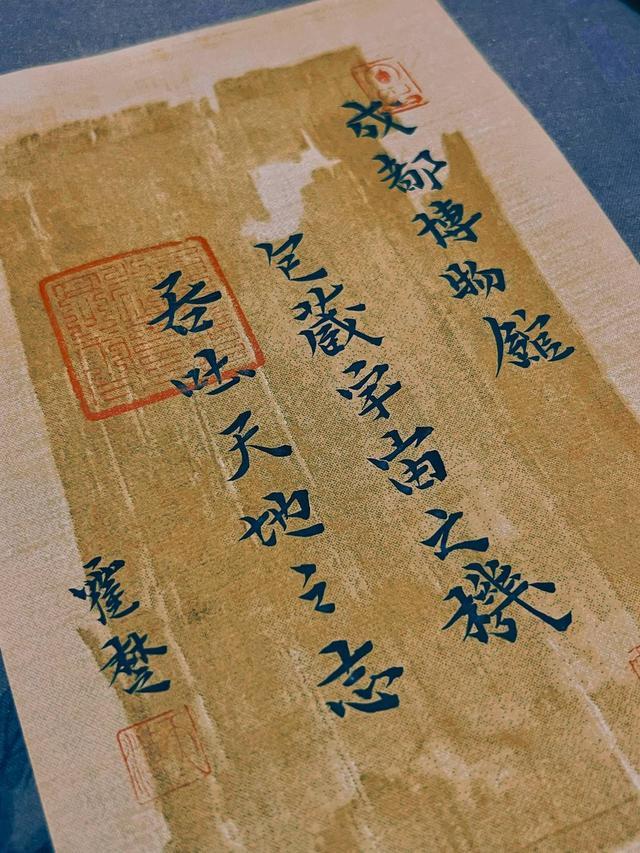 成都博物館
包藏宇宙之機
吞吐天地之志